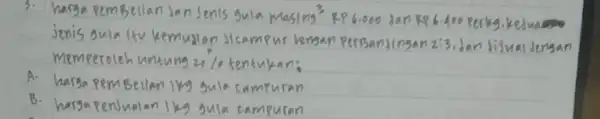 3. harga pembelian dan jenis gula masing² RP 6.000 dan RP 6.400 perkg. kedua
jenis gula itu kemudian dicampur dengan perbandingan 2:3. dan dijual dengan
memperoleh untung 20 % tentukan:
A. harga pembelian 1 kg gula campuran
B. harga penjualan 1 kg gula campuran